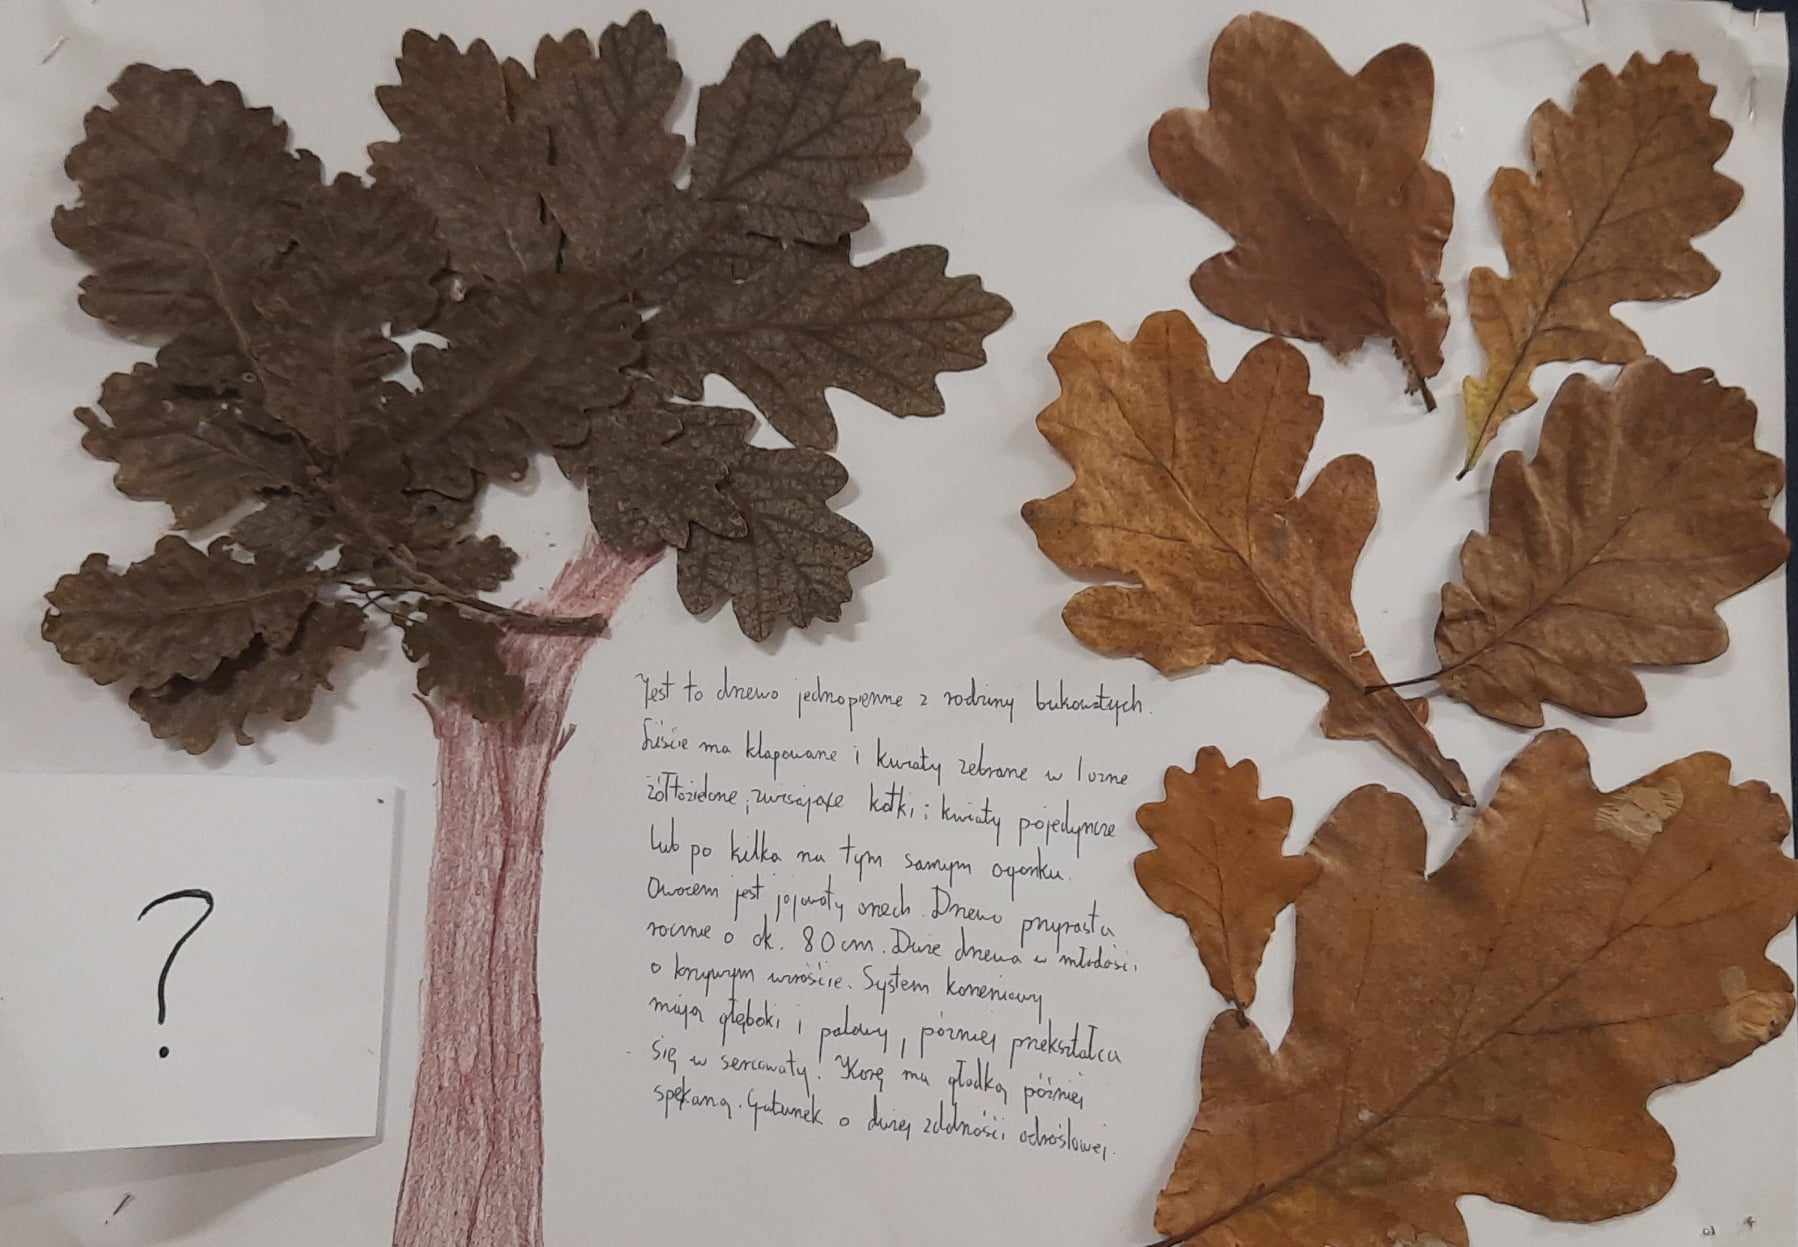 Jest to drzewo jednopienne z rodziny bukowatych.
Liście ma klapowane i kwiaty zebrane w luźne
żółtozielone, zwisające kotki; kwiaty pojedyncze
lub po kilka na tym samym ogonku.
Owocem jest jajowaty orzech. Drzewo przyrasta
rocznie o ok. 80 cm. Duże drzewa w młodości
o krzywym wzroście. System korzeniowy
mają głęboki i palowy, później przekształca
się w sercowaty. Korę ma gładką później
spękaną. Gatunek o dużej zdolności odroślowej.
?